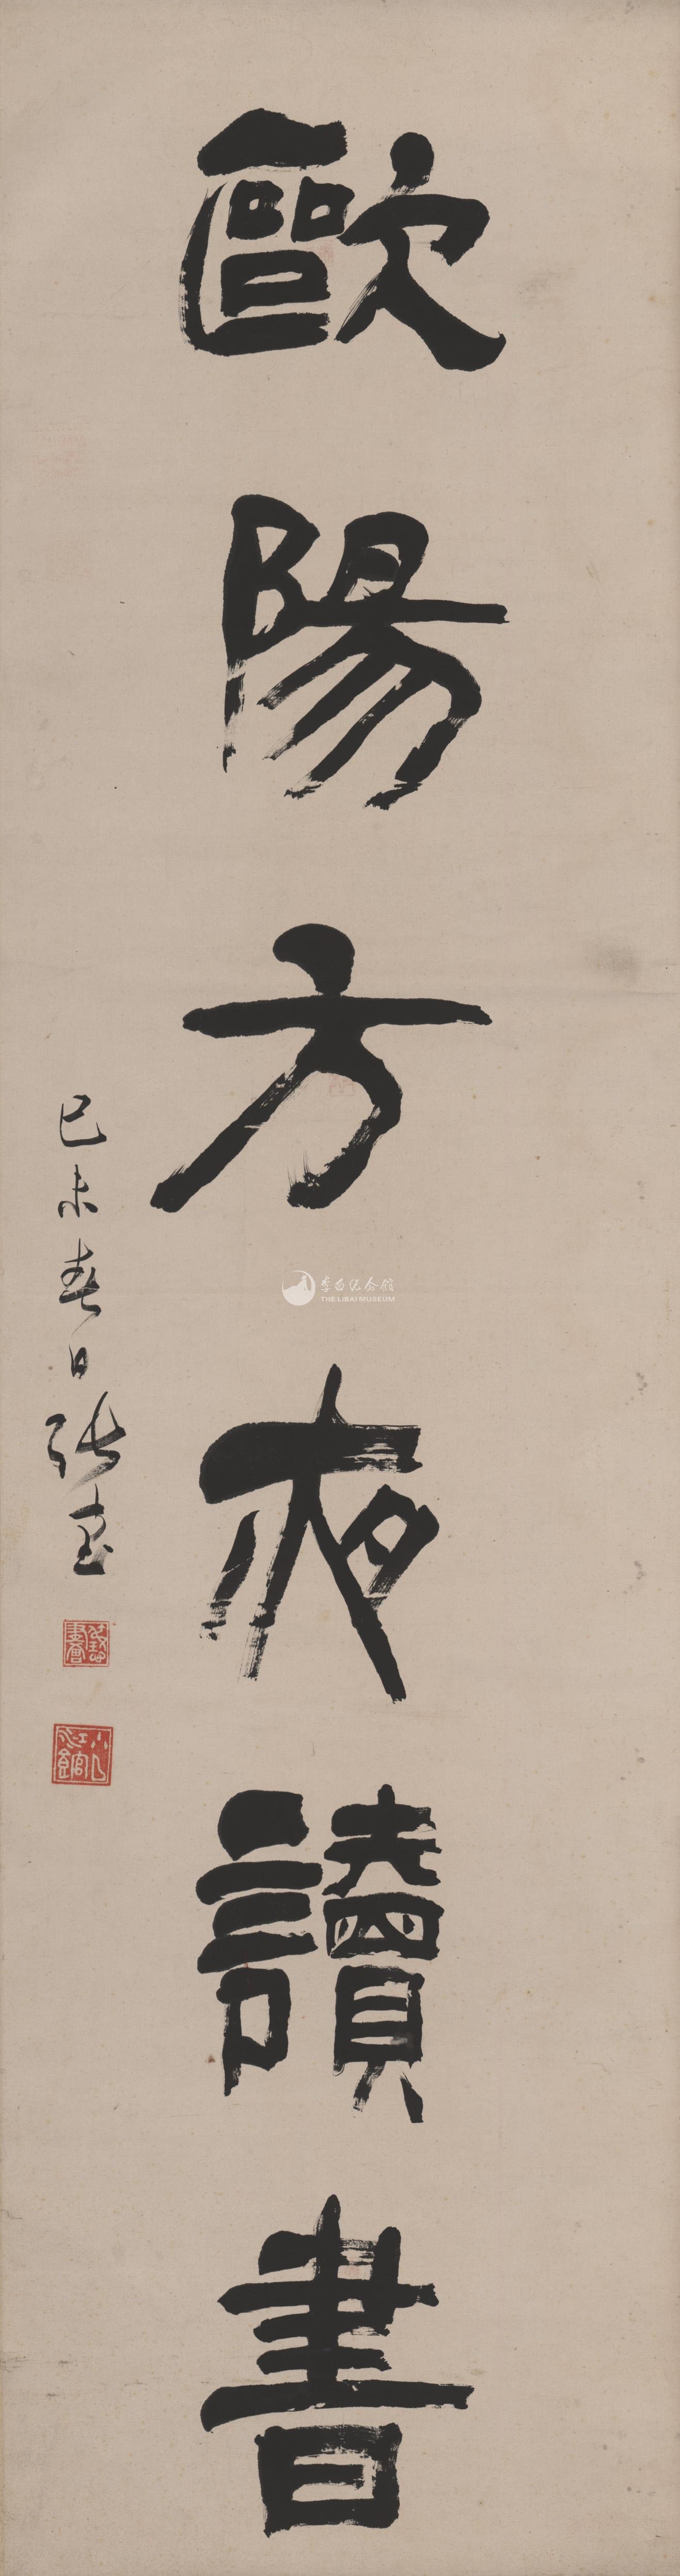 歐陽方夜讀書
己未春日張
李白纪念馆
THE LIBAI MUSEUM